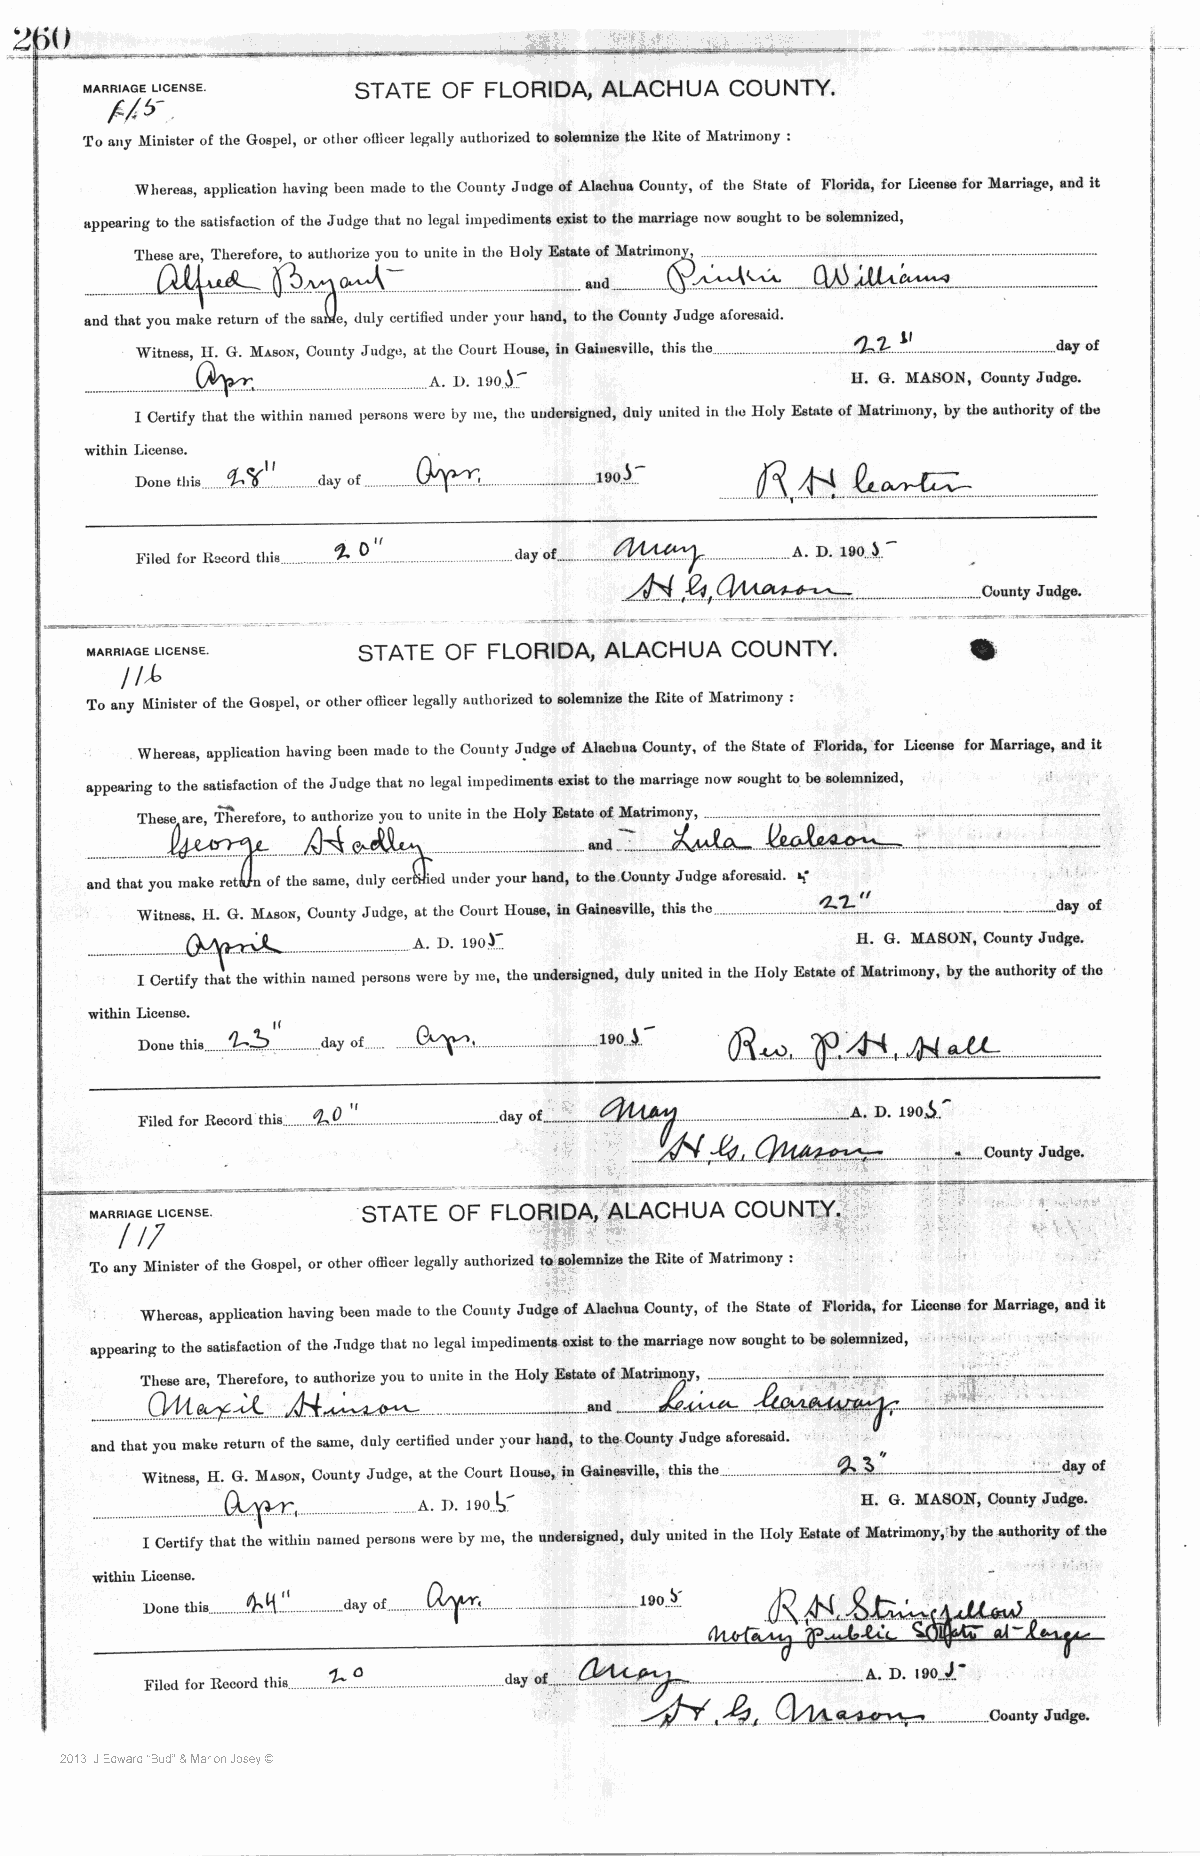 260
MARRIAGE LICENSE. STATE OF FLORIDA, ALACHUA COUNTY.
115
To any Minister of the Gospel, or other officer legally authorized to solemnize the Rite of Matrimony :
Whereas, application having been made to the County Judge of Alachua County, of the State of Florida, for License for Marriage, and it
appearing to the satisfaction of the Judge that no legal impediments exist to the marriage now sought to be solemnized,
These are, Therefore, to authorize you to unite in the Holy Estate of Matrimony,
Alfred Bryant and Pinkie Williams
and that you make return of the same, duly certified under your hand, to the County Judge aforesaid.
Witness, H. G. MASON, County Judge, at the Court House, in Gainesville, this the 22" day of
Apr. A. D. 1905 H. G. MASON, County Judge.
I Certify that the within named persons were by me, the undersigned, duly united in the Holy Estate of Matrimony, by the authority of the
within License.
Done this 28" day of Apr. 1905 R. H. Carter
Filed for Record this 20" day of May A. D. 1905
H. G. Mason County Judge.
MARRIAGE LICENSE. STATE OF FLORIDA, ALACHUA COUNTY.
116
To any Minister of the Gospel, or other officer legally authorized to solemnize the Rite of Matrimony :
Whereas, application having been made to the County Judge of Alachua County, of the State of Florida, for License for Marriage, and it
appearing to the satisfaction of the Judge that no legal impediments exist to the marriage now sought to be solemnized,
These are, Therefore, to authorize you to unite in the Holy Estate of Matrimony,
George Hadley and Lula Caleson
and that you make return of the same, duly certified under your hand, to the County Judge aforesaid.
Witness, H. G. MASON, County Judge, at the Court House, in Gainesville, this the 22" day of
April A. D. 1905 H. G. MASON, County Judge.
I Certify that the within named persons were by me, the undersigned, duly united in the Holy Estate of Matrimony, by the authority of the
within License.
Done this 23" day of Apr. 1905 Rev. P. H. Hall
Filed for Record this 20" day of May A. D. 1905
H. G. Mason County Judge.
MARRIAGE LICENSE. STATE OF FLORIDA, ALACHUA COUNTY.
117
To any Minister of the Gospel, or other officer legally authorized to solemnize the Rite of Matrimony :
Whereas, application having been made to the County Judge of Alachua County, of the State of Florida, for License for Marriage, and it
appearing to the satisfaction of the Judge that no legal impediments exist to the marriage now sought to be solemnized,
These are, Therefore, to authorize you to unite in the Holy Estate of Matrimony,
Maxil Hinson and Leina Caraway,
and that you make return of the same, duly certified under your hand, to the County Judge aforesaid.
Witness, H. G. MASON, County Judge, at the Court House, in Gainesville, this the 23" day of
Apr. A. D. 1905 H. G. MASON, County Judge.
I Certify that the within named persons were by me, the undersigned, duly united in the Holy Estate of Matrimony, by the authority of the
within License.
Done this 24" day of Apr. 1905 R. H. Stringfellow
Notary Public State at large
Filed for Record this 20 day of May A. D. 1905
H. G. Mason County Judge.
2013 J Edward "Bud" & Marion Josey ©